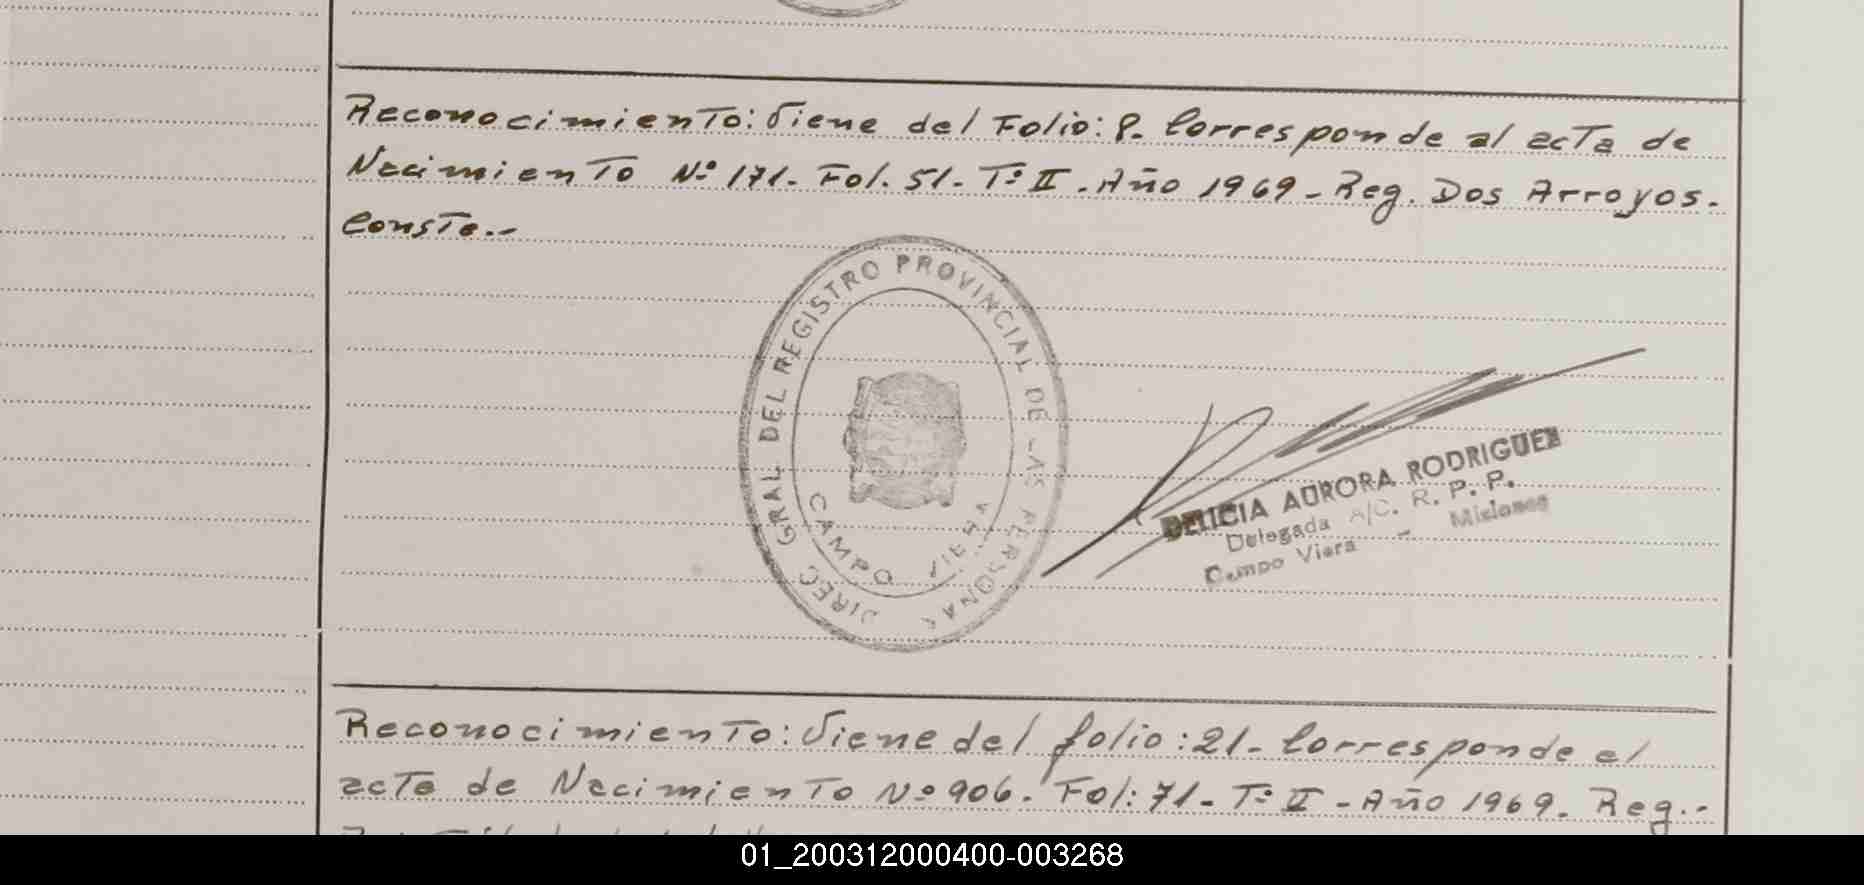 Reconocimiento: Viene del Folio: 8. Corresponde al acta de
Nacimiento Nº 171. Fol. 51. Tº II. Año 1969. Reg. Dos Arroyos.
Conste.-
DIREC. GRAL DEL REGISTRO PROVINCIAL DE LAS PERSONAS
CAMPO VIERA
DELICIA AURORA RODRIGUEZ
Delegada A/C. R. P. P.
Campo Viera - Misiones
Reconocimiento: Viene del folio: 21. Corresponde al
acta de Nacimiento Nº 906. Fol: 71. Tº II - Año 1969. Reg.-
01_200312000400-003268